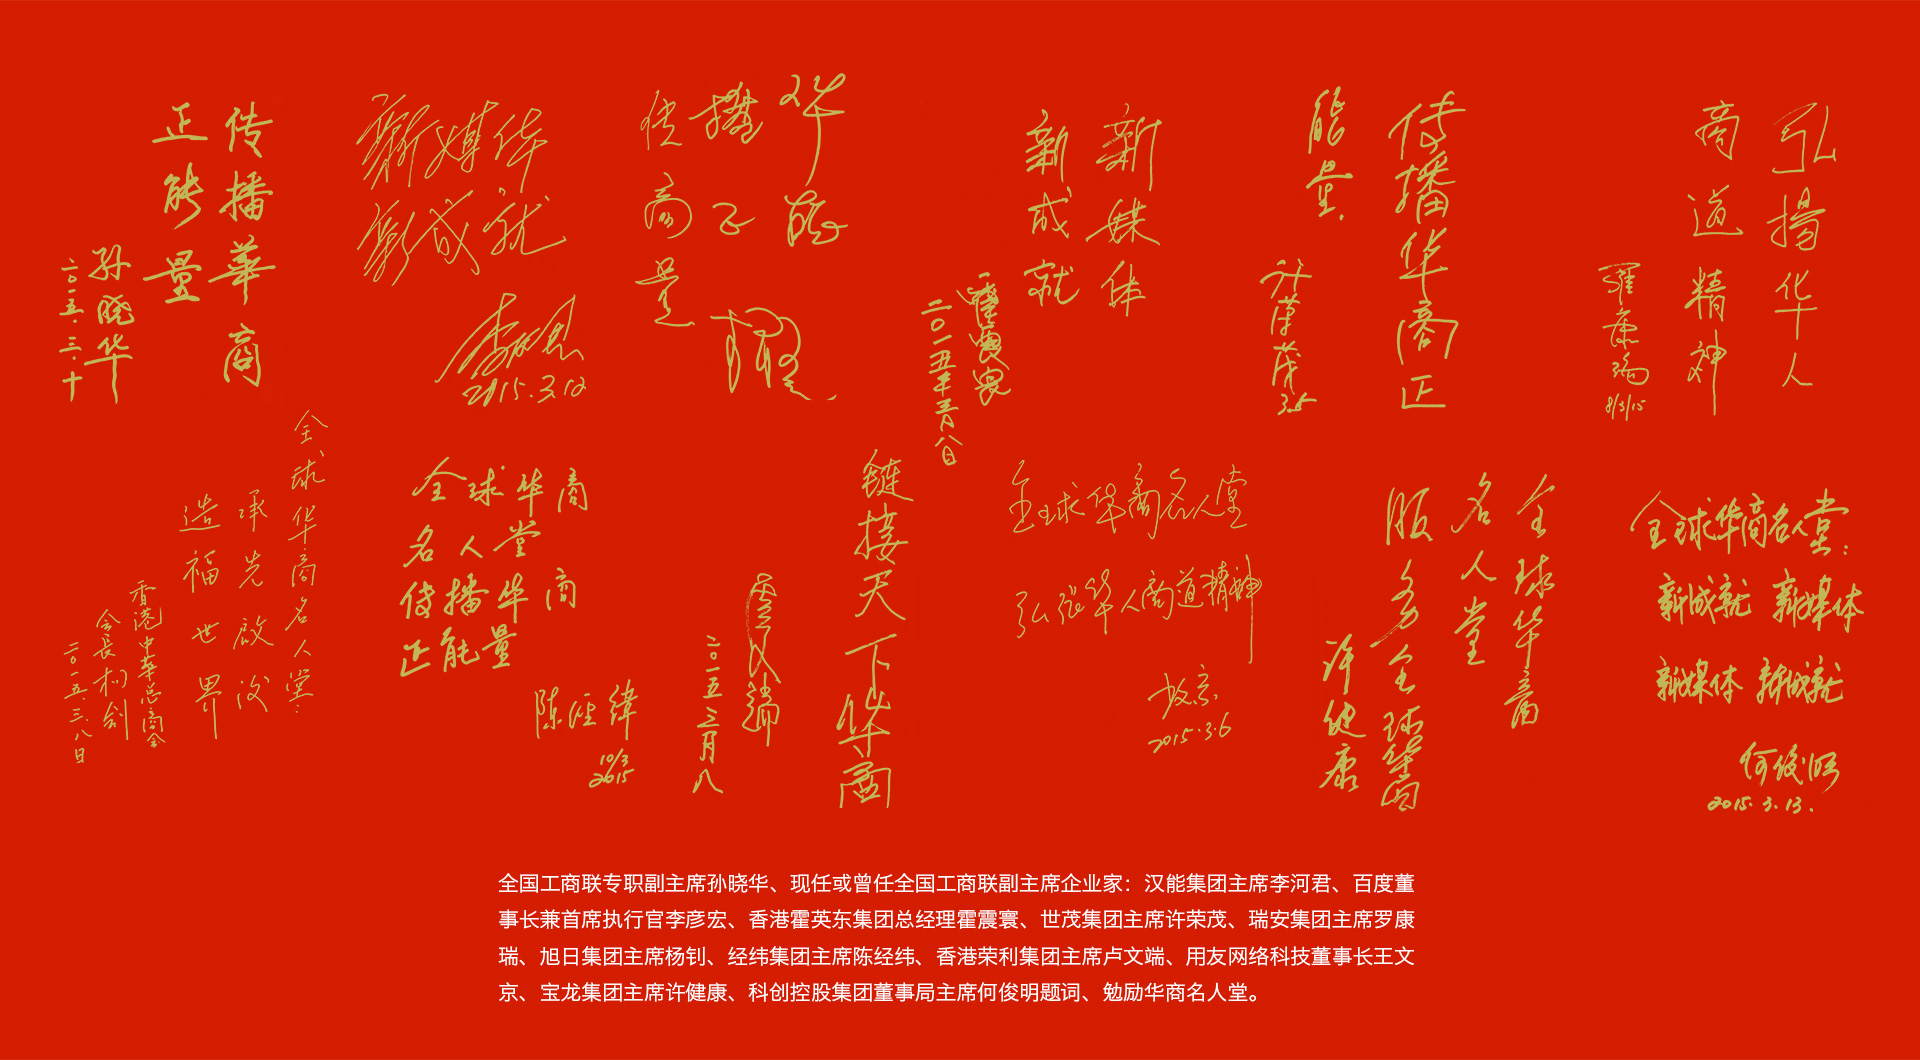 传播華商
正能量
孙晓华
二〇一五.三.十
新媒体
新成就
2015.3.12
传播华
商正能
量
新媒体
新成就
霍震寰
二〇一五年三月八日
传播华商正
能量.
许荣茂
3.5
弘揚华人
商道精神
罗康瑞
8/3/15
全球华商名人堂:
承先啟後
造福世界
香港中華总商会
会長杨釗
二〇一五.三.八日
全球华商
名人堂
传播华商
正能量
陈经緯
10/3
2015
链接天下华商
二〇一五三月八
全球华商名人堂
弘扬华人商道精神
文京
2015.3.6
全球华商
名人堂
服务全球华商
许健康
全球华商名人堂:
新成就 新媒体
新媒体 新成就
何俊明
2015.3.13.
全国工商联专职副主席孙晓华、现任或曾任全国工商联副主席企业家：汉能集团主席李河君、百度董
事长兼首席执行官李彦宏、香港霍英东集团总经理霍震寰、世茂集团主席许荣茂、瑞安集团主席罗康
瑞、旭日集团主席杨钊、经纬集团主席陈经纬、香港荣利集团主席卢文端、用友网络科技董事长王文
京、宝龙集团主席许健康、科创控股集团董事局主席何俊明题词、勉励华商名人堂。